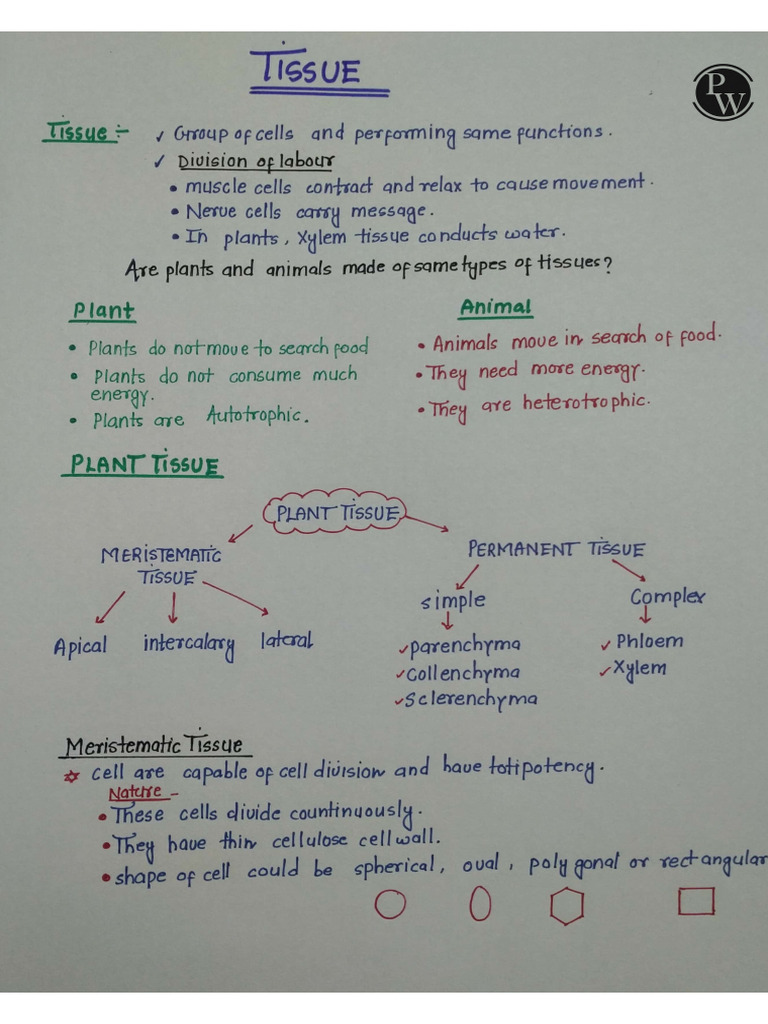 TISSUE
PW
Tissue :- ✓ Group of cells and performing same functions.
✓ Division of labour
• muscle cells contract and relax to cause movement.
• Nerve cells carry message.
• In plants, Xylem tissue conducts water.
Are plants and animals made of same types of tissues?
Plant
• Plants do not move to search food
• Plants do not consume much
energy.
• Plants are Autotrophic.
Animal
• Animals move in search of food.
• They need more energy.
• They are heterotrophic.
PLANT TISSUE
PLANT TISSUE
MERISTEMATIC
TISSUE
PERMANENT TISSUE
Apical intercalary lateral
simple
✓ parenchyma
✓ Collenchyma
✓ Sclerenchyma
Complex
✓ Phloem
✓ Xylem
Meristematic Tissue
✡ Cell are capable of cell division and have totipotency.
Nature -
• These cells divide countinuously.
• They have thin cellulose cell wall.
• shape of cell could be spherical, oval, polygonal or rectangular